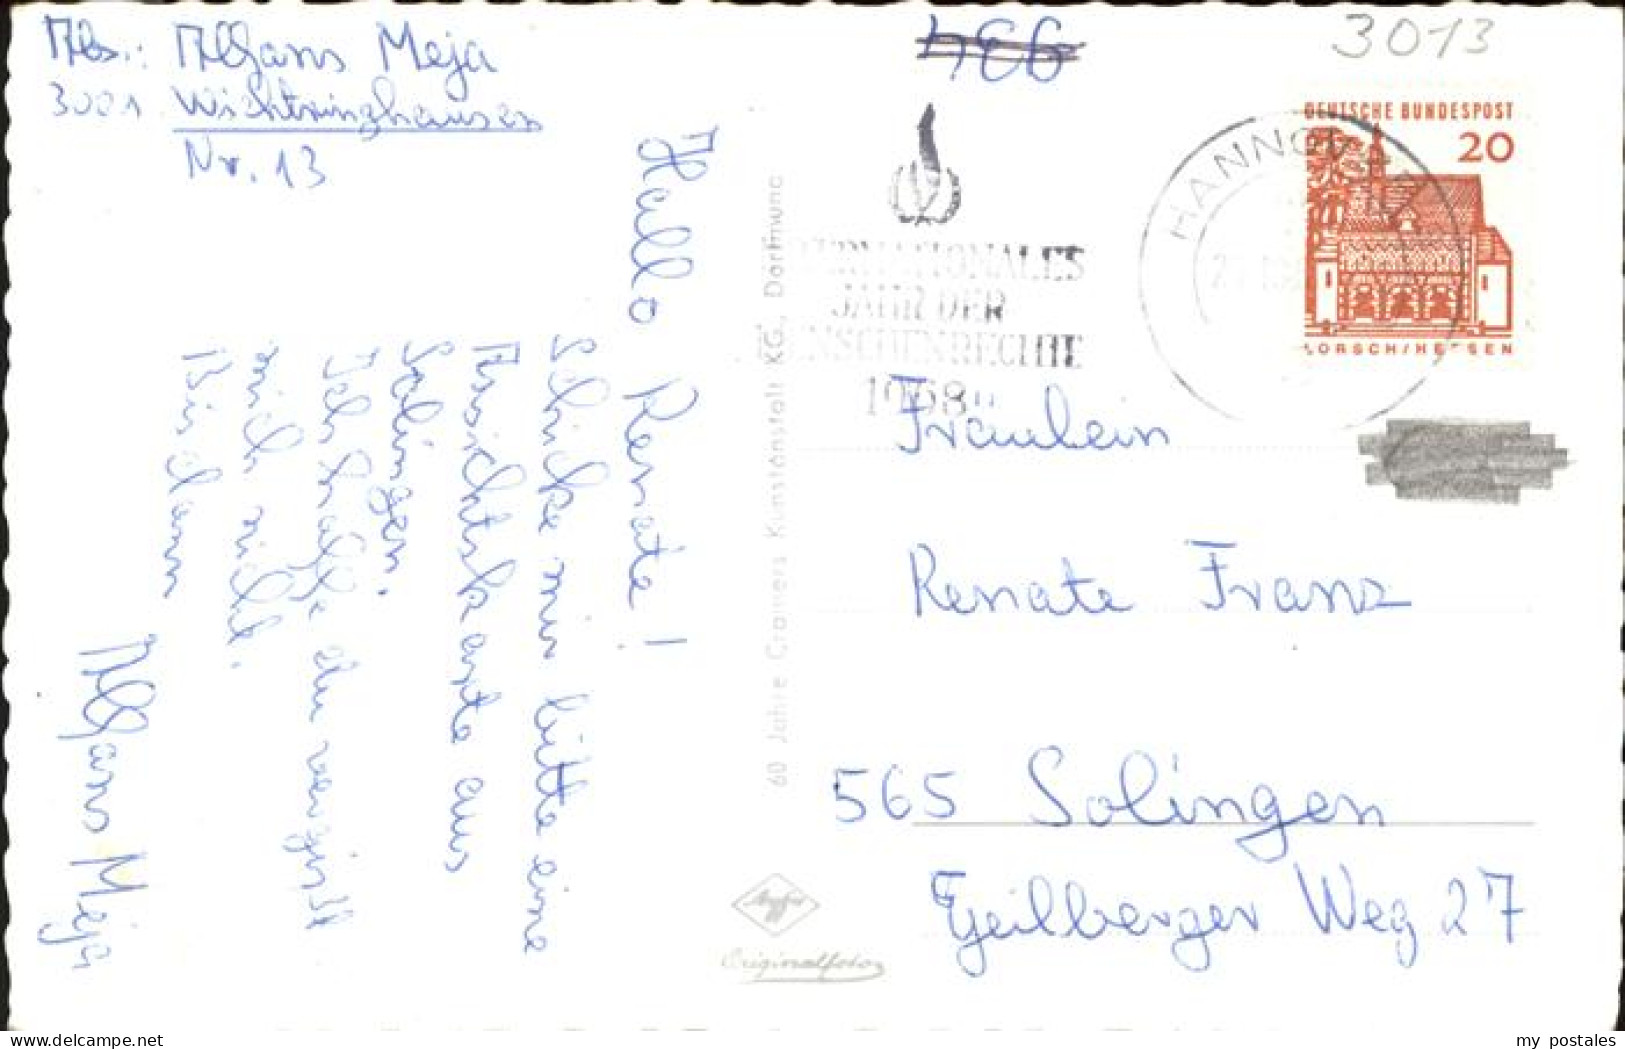 Abs.: Alfons Meja
3001 Wichtringhausen
Nr. 13
Hallo Renate!
Schicke mir bitte eine
Ansichtskarte aus
Solingen.
Ich hoffe du vergißt
mich nicht.
Bis dann
Alfons Meja
60 Jahre Cramers Kunstanstalt KG., Dortmund
Agfa
Originalfoto
934
3013
INTERNATIONALES
JAHR DER
MENSCHENRECHTE
1968
HANNOVER
DEUTSCHE BUNDESPOST
20
LORSCH/HESSEN
Fräulein
Renate Franz
565 Solingen
Geilberger Weg 27
my postales